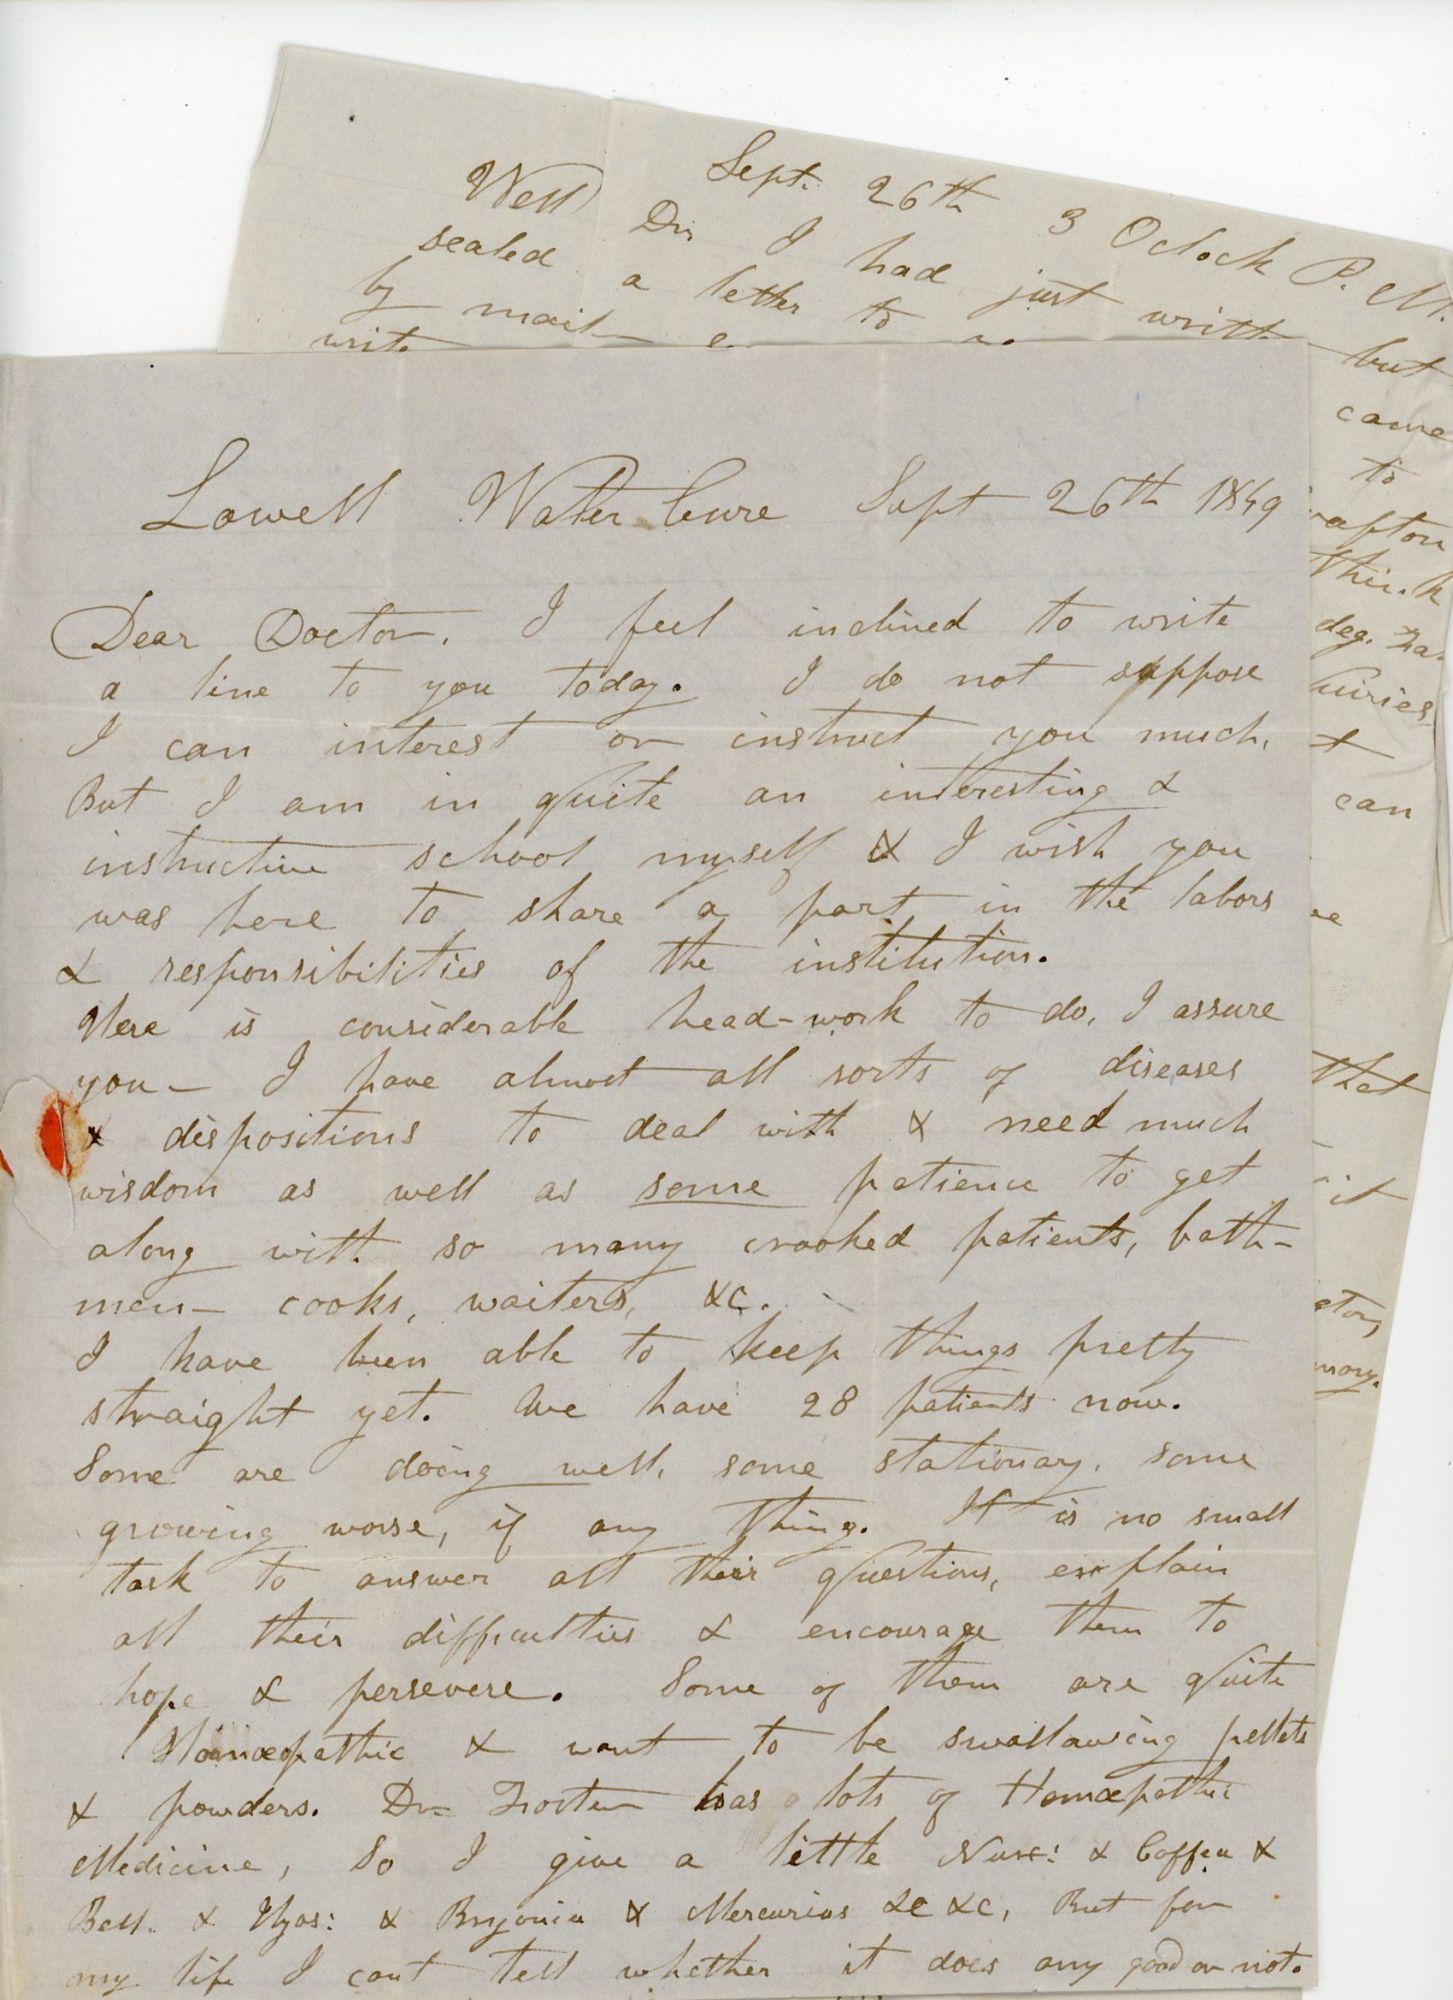 Sept. 26th 3 Oclock P. M.
Well Dr. I had just writt but
sealed a letter to came
by mail to
write
rafton
think
deg.
t
can
that
it
Lowell Water Cure Sept 26th 1849
Dear Doctor. I feel inclined to write
a line to you today. I do not suppose
I can interest or instruct you much,
But I am in quite an interesting &
instructive school myself & I wish you
was here to share a part in the labors
& responsibilities of the institution.
Here is considerable head-work to do, I assure
you— I have almost all sorts of diseases
& dispositions to deal with & need much
wisdom as well as some patience to get
along with so many crooked patients, bath-
men— cooks, waiters, &c.
I have been able to keep things pretty
straight yet. We have 28 patients now.
Some are doing well, some stationary, some
growing worse, if any thing. It is no small
task to answer all their questions, explain
all their difficulties & encourage them to
hope & persevere. Some of them are quite
Homœopathic & want to be swallowing pellets
& powders. Dr= Foster has lots of Homœpathic
Medicine, So I give a little Nux: & Coffea &
Bell. & Hyos: & Bryonia & Mercurius &c &c, But for
my life I cant tell whether it does any good or not.